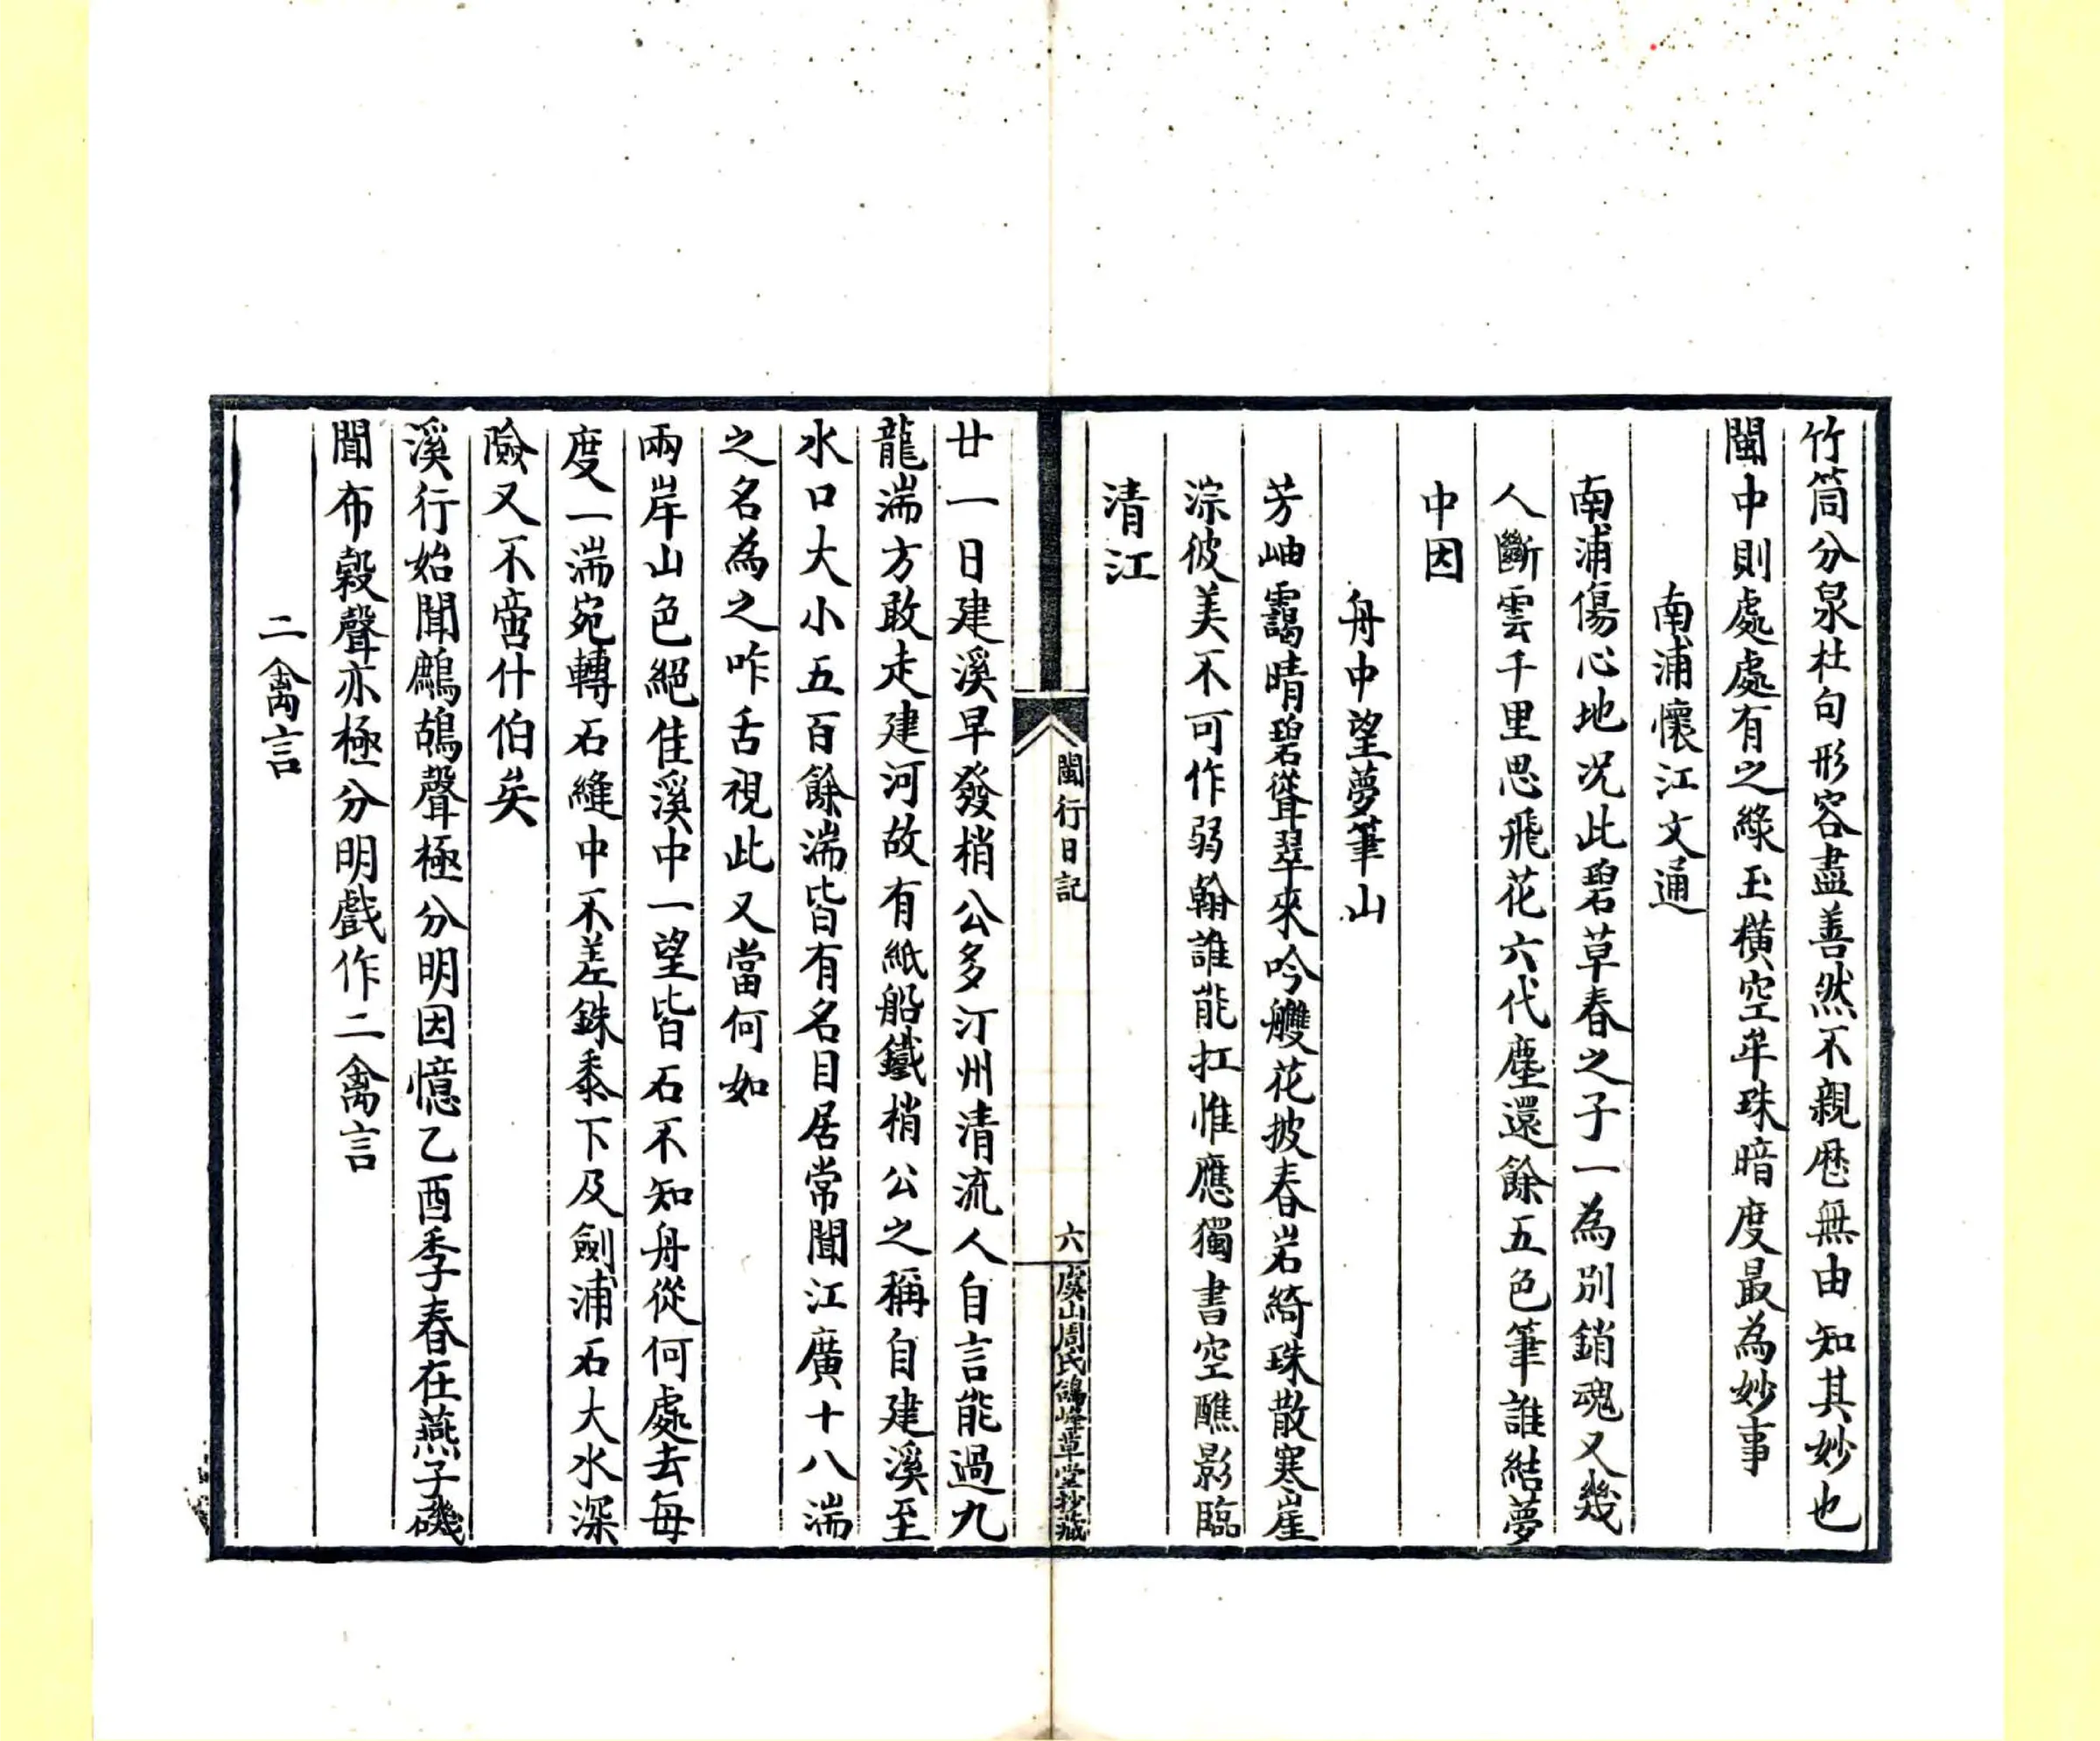 竹筒分泉杜句形容盡善然不親歷無由知其妙也
閩中則處處有之綠玉橫空牟珠暗度最為妙事
南浦懷江文通
南浦傷心地况此碧草春之子一為別銷魂又幾
人斷雲千里思飛花六代塵還餘五色筆誰結夢
中因
舟中望夢筆山
芳岫靄晴碧聳翠來吟艭花披春岩綺珠散寒崖
淙彼美不可作弱翰誰能扛惟應獨書空醮影臨
清江
閩行日記
六
虞山周氏鴿峰草堂抄藏
廿一日建溪早發梢公多汀州清流人自言能過九
龍湍方敢走建河故有紙船鐵梢公之稱自建溪至
水口大小五百餘湍皆有名目居常聞江廣十八湍
之名為之咋舌視此又當何如
兩岸山色絕佳溪中一望皆石不知舟從何處去每
度一湍宛轉石縫中不差銖黍下及劍浦石大水深
險又不啻什伯矣
溪行始聞鷓鴣聲極分明因憶乙酉季春在燕子磯
聞布穀聲亦極分明戲作二禽言
二禽言